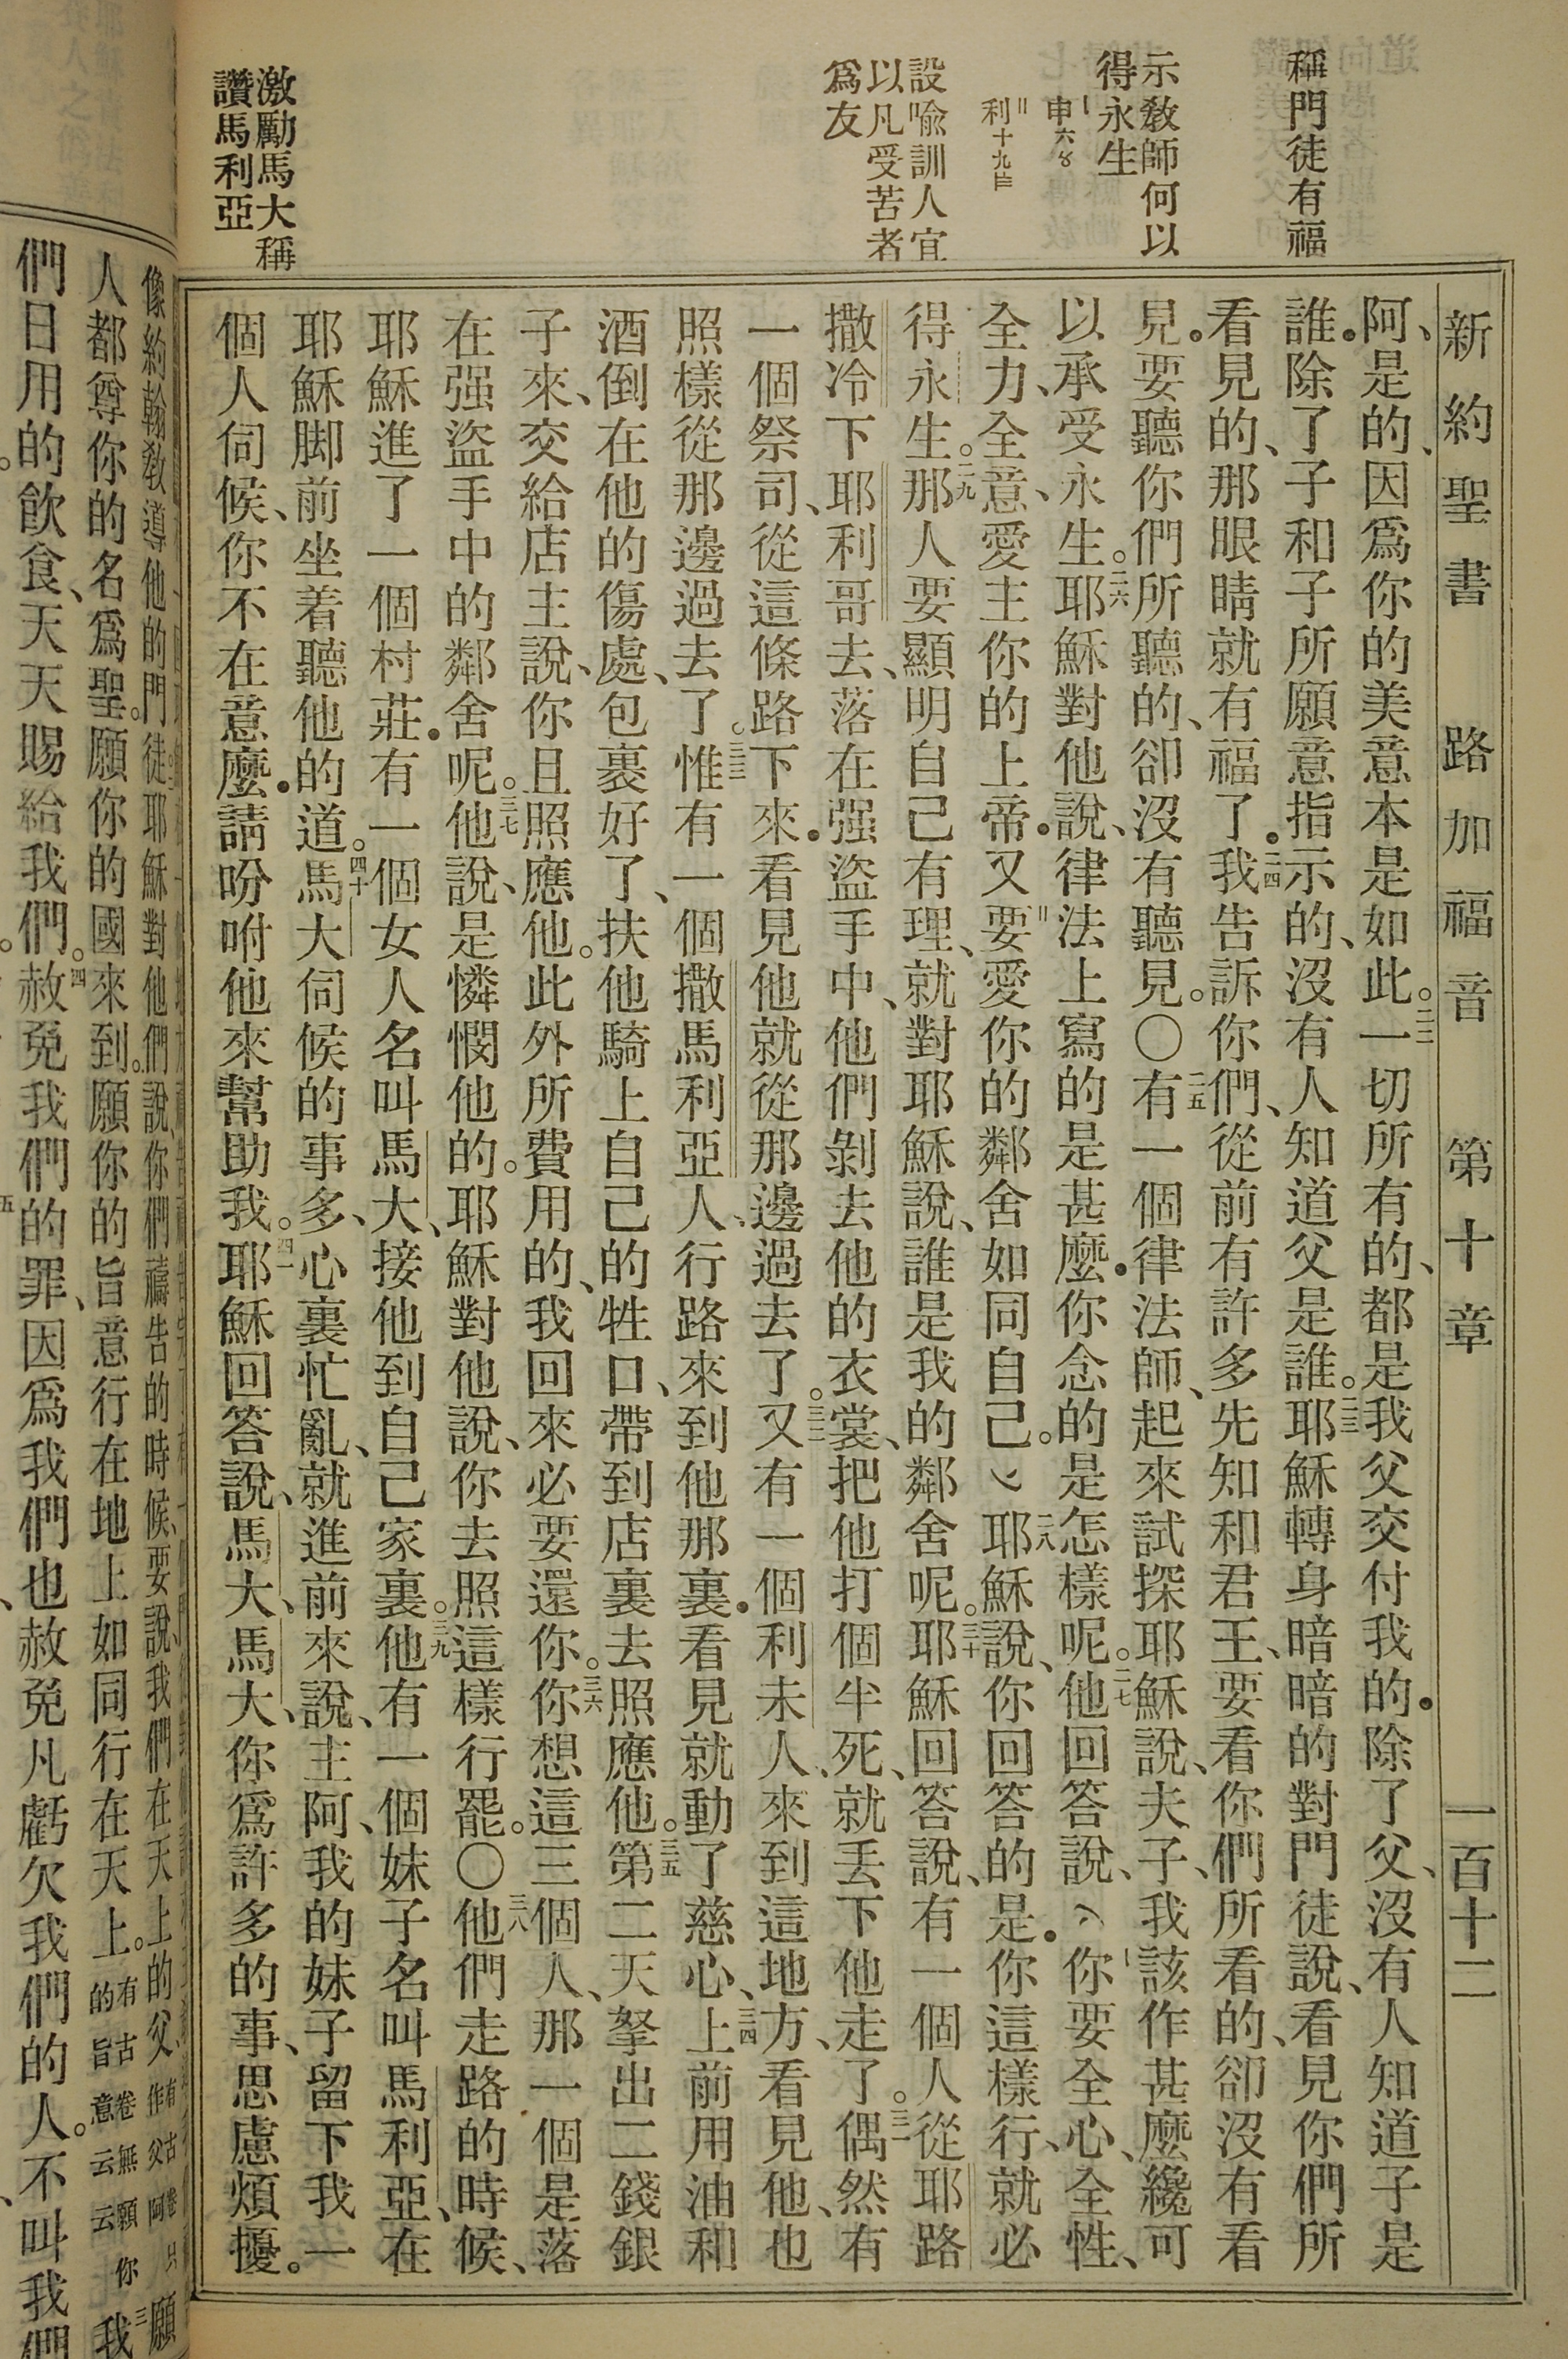 新約聖書 路加福音 第十章 一百十二
稱門徒有福
示敎師何以
得永生
申六
利十九
設喩訓人宜
以凡受苦者
爲友
激勵馬大稱
讚馬利亞
阿、是的、因爲你的美意本是如此。二二一切所有的、都是我父交付我的.除了父、沒有人知道子是
誰.除了子和子所願意指示的、沒有人知道父是誰。二三耶穌轉身暗暗的對門徒說、看見你們所
看見的、那眼睛就有福了.二四我告訴你們、從前有許多先知和君王、要看你們所看的、卻沒有看
見.要聽你們所聽的、卻沒有聽見。〇二五有一個律法師、起來試探耶穌說、夫子、我該作甚麼纔可
以承受永生。二六耶穌對他說、律法上寫的是甚麼.你念的是怎樣呢。二七他回答說、你要全心、全性、
全力、全意、愛主你的上帝.又要愛你的鄰舍如同自己。二八耶穌說、你回答的是.你這樣行、就必
得永生。二九那人要顯明自己有理、就對耶穌說、誰是我的鄰舍呢。三十耶穌回答說、有一個人從耶路
撒冷下耶利哥去、落在强盜手中、他們剝去他的衣裳、把他打個半死、就丟下他走了。三一偶然有
一個祭司、從這條路下來.看見他就從那邊過去了。三二又有一個利未人、來到這地方、看見他、也
照樣從那邊過去了。三三惟有一個撒馬利亞人、行路來到他那裏.看見就動了慈心、三四上前用油和
酒倒在他的傷處、包裹好了、扶他騎上自己的牲口、帶到店裏去照應他。三五第二天拏出二錢銀
子來、交給店主說、你且照應他。此外所費用的、我回來必要還你。三六你想這三個人、那一個是落
在强盜手中的鄰舍呢。三七他說、是憐憫他的。耶穌對他說、你去照這樣行罷。〇三八他們走路的時候、
耶穌進了一個村莊.有一個女人名叫馬大、接他到自己家裏。三九他有一個妹子名叫馬利亞、在
耶穌脚前坐着聽他的道。四十馬大伺候的事多、心裏忙亂、就進前來說、主阿、我的妹子留下我一
個人伺候、你不在意麼.請吩咐他來幫助我。四一耶穌回答說、馬大、馬大、你爲許多的事、思慮煩擾。
像約翰敎導他的門徒。耶穌對他們說、你們禱吿的時候、要說、我們在天上的父、有古卷只作父阿願
人都尊你的名爲聖。願你的國來到。願你的旨意行在地上如同行在天上。有古卷無願你的旨意云云三我
們日用的飮食、天天賜給我們。四赦免我們的罪、因爲我們也赦免凡虧欠我們的人。不叫我們